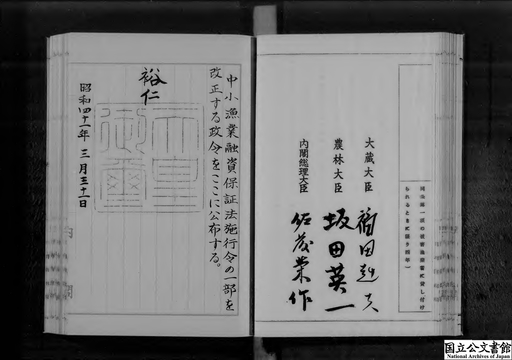 大蔵大臣 福田赳夫
農林大臣 坂田英一
内閣総理大臣 佐藤榮作
中小漁業融資保証法施行令の一部を
改正する政令をここに公布する。
裕仁
天皇
御璽
昭和四十一年 三月三十一日
国立公文書館
National Archives of Japan